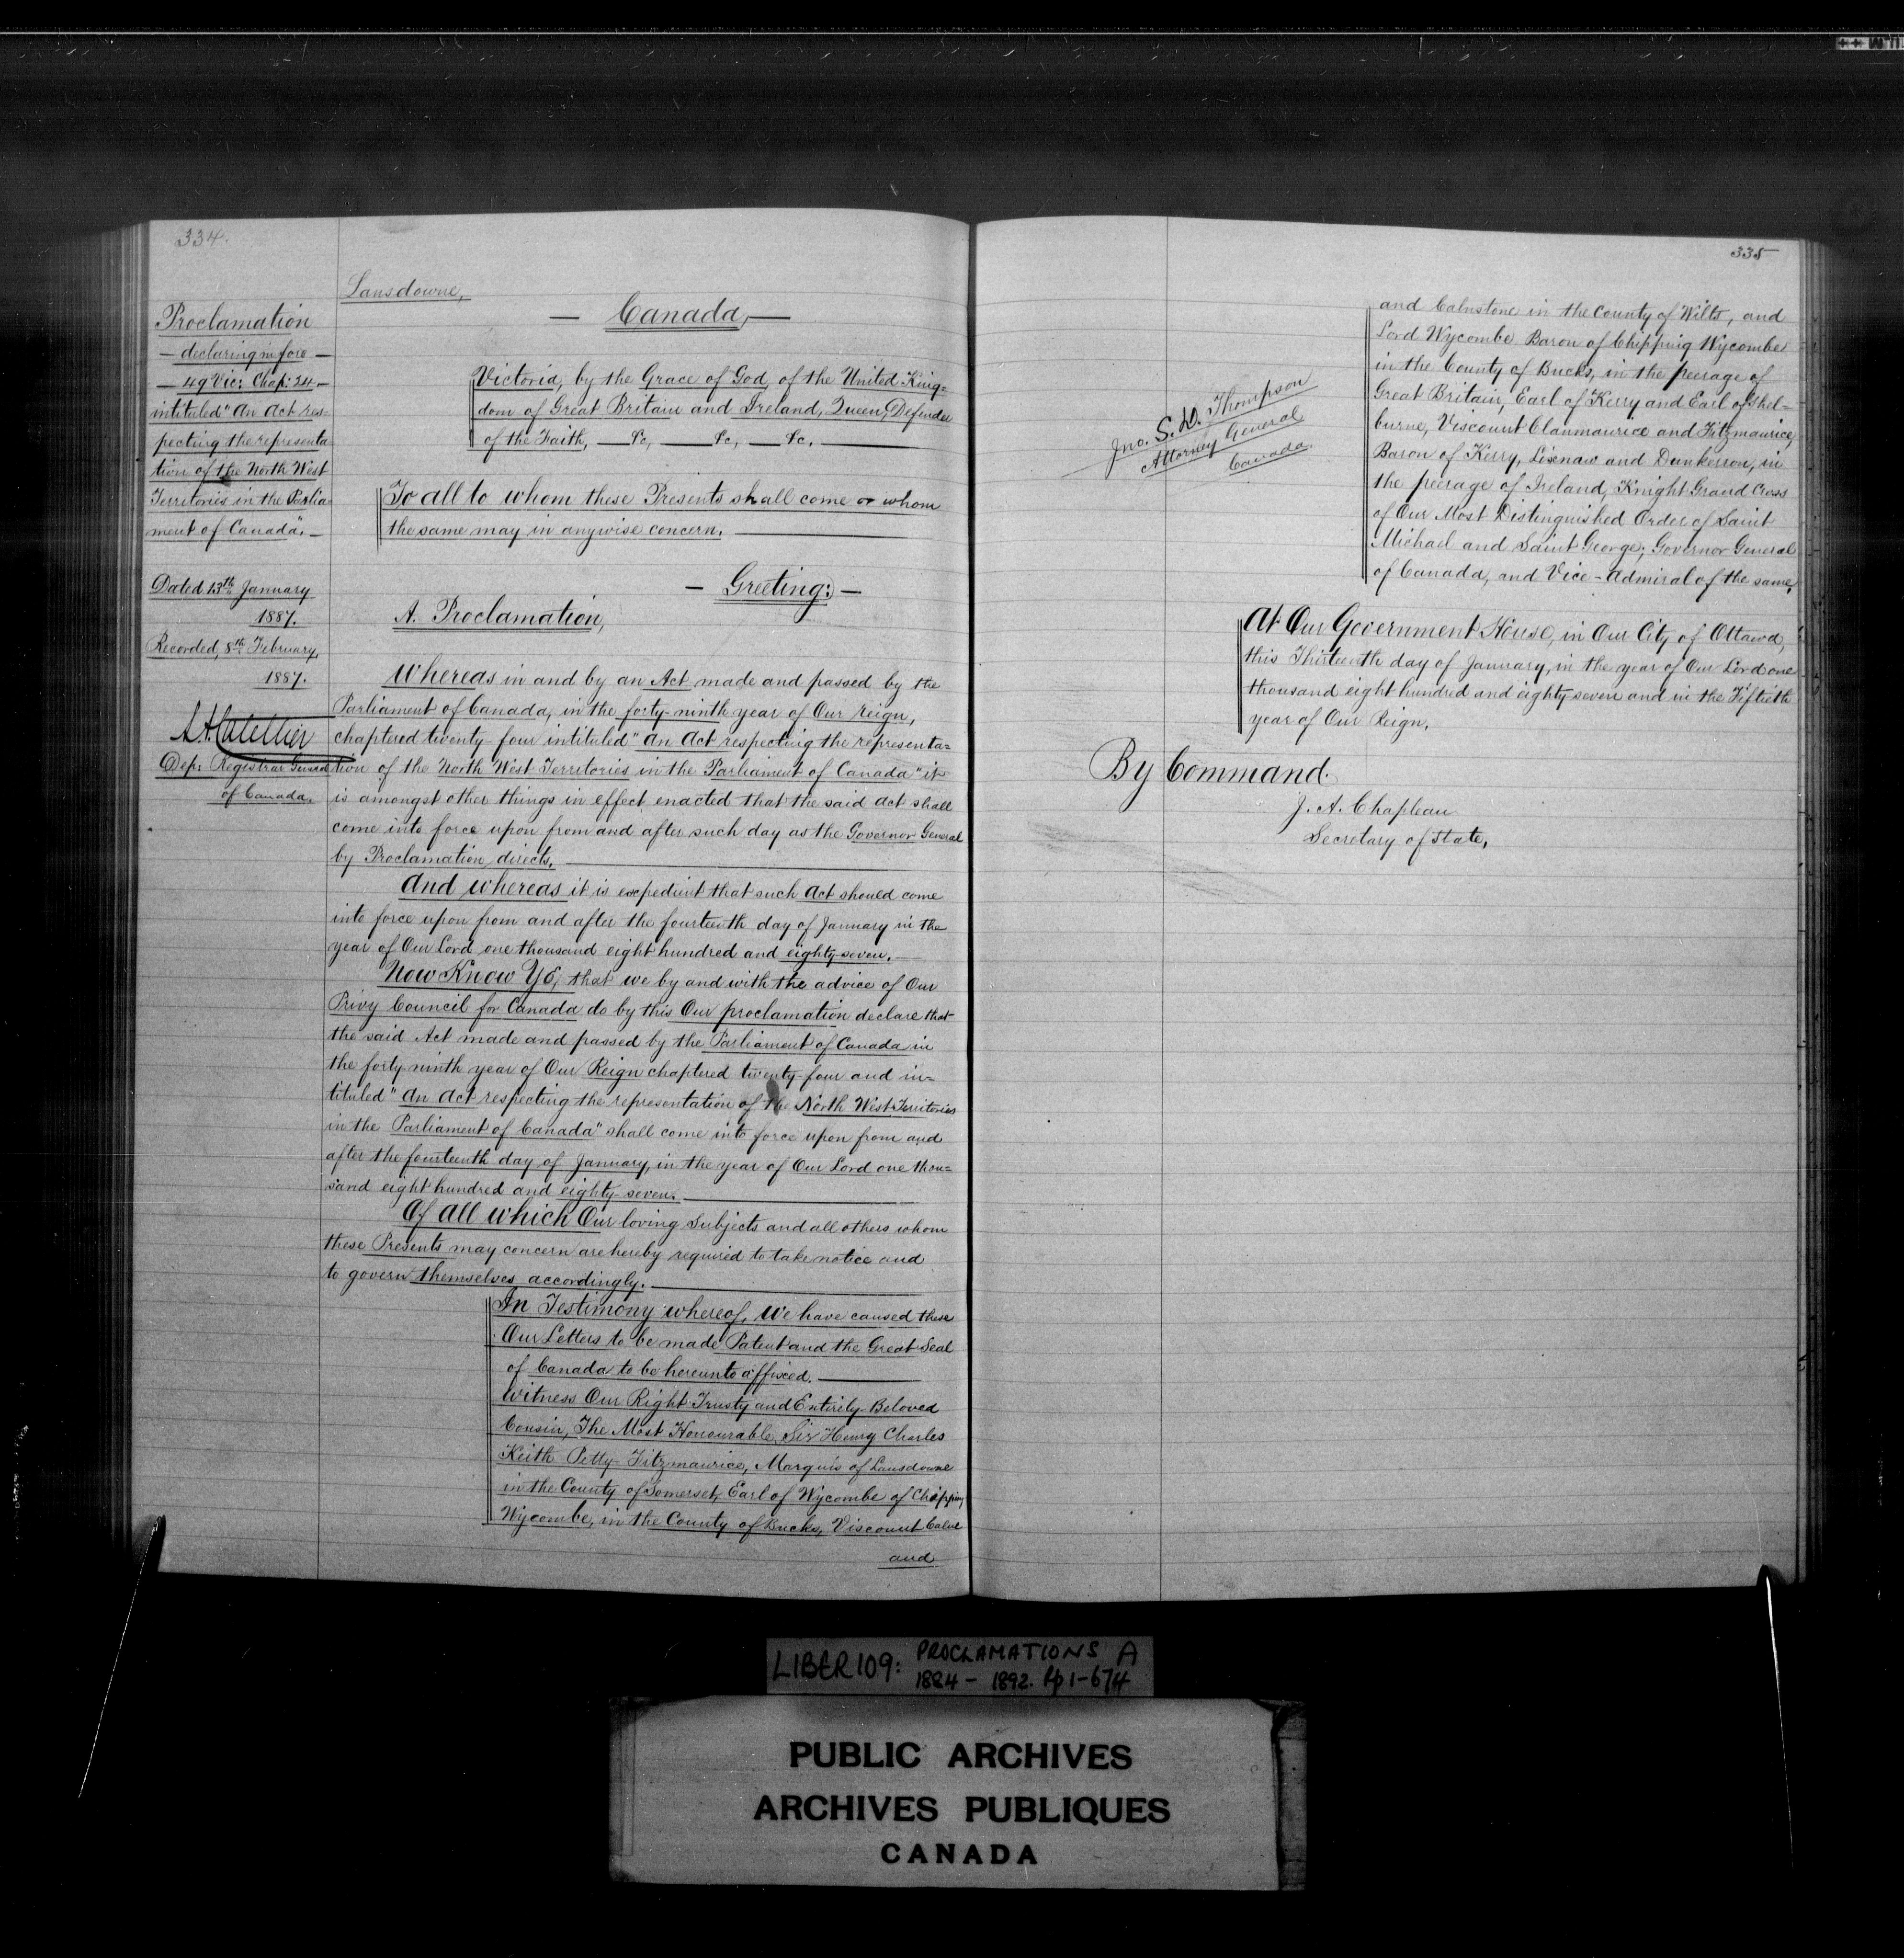 334.
Lansdowne,
— Canada, —
Proclamation
— declaring in force —
— 49 Vic: Chap: 24 —
intituled "An Act res-
pecting the representa
tion of the North West
Territories in the Parlia-
ment of Canada". —
Dated 13th January
1887.
Recorded, 8th February,
1887.
A. H. Catellier
Dep: Registrar General
of Canada.
Victoria, by the Grace of God, of the United King-
dom of Great Britain and Ireland, Queen, Defender
of the Faith, — &c, — &c, — &c.
To all to whom these Presents shall come or whom
the same may in anywise concern.
— Greeting: —
A. Proclamation,
Whereas in and by an Act made and passed by the
Parliament of Canada, in the forty-ninth year of Our reign,
chaptered twenty-four intituled "An Act respecting the representa-
tion of the North West Territories in the Parliament of Canada" it
is amongst other things in effect enacted that the said Act shall
come into force upon from and after such day as the Governor General
by Proclamation directs.
And whereas it is expedient that such Act should come
into force upon from and after the fourteenth day of January in the
year of Our Lord one thousand eight hundred and eighty-seven. —
Now Know Ye, that we by and with the advice of Our
Privy Council for Canada do by this Our proclamation declare that
the said Act made and passed by the Parliament of Canada in
the forty-ninth year of Our Reign chaptered twenty-four and in-
tituled "An Act respecting the representation of the North West Territories
in the Parliament of Canada" shall come into force upon from and
after the fourteenth day of January, in the year of Our Lord one thou-
sand eight hundred and eighty-seven.
Of all which Our loving Subjects and all others whom
these Presents may concern are hereby required to take notice and
to govern themselves accordingly.
In Testimony whereof, We have caused these
Our Letters to be made Patent and the Great Seal
of Canada to be hereunto affixed.
Witness Our Right Trusty and Entirely Beloved
Cousin, The Most Honourable Sir Henry Charles
Keith Petty Fitzmaurice, Marquis of Lansdowne
in the County of Somerset, Earl of Wycombe of Chipping
Wycombe, in the County of Bucks, Viscount Calne
and
335
and Calnstone in the County of Wilts, and
Lord Wycombe Baron of Chipping Wycombe
in the County of Bucks, in the peerage of
Great Britain, Earl of Kerry and Earl of Shel-
burne, Viscount Clanmaurice and Fitzmaurice,
Baron of Kerry, Lixnaw and Dunkerron, in
the peerage of Ireland, Knight Grand Cross
of Our Most Distinguished Order of Saint
Michael and Saint George; Governor General
of Canada, and Vice-Admiral of the same,
Jno. S. D. Thompson
Attorney General
Canada.
At Our Government House, in Our City of Ottawa,
this Thirteenth day of January, in the year of Our Lord one
thousand eight hundred and eighty seven and in the Fiftieth
year of Our Reign.
By Command.
J. A. Chapleau
Secretary of State,
LIBER 109: PROCLAMATIONS A
1884 - 1892. Pp 1-674
PUBLIC ARCHIVES
ARCHIVES PUBLIQUES
CANADA